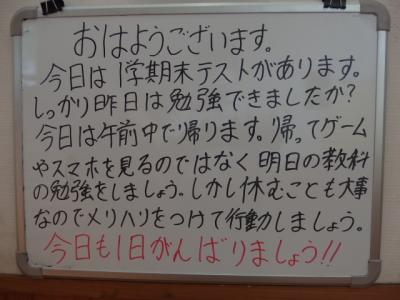 おはようございます。
今日は1学期末テストがあります。
しっかり昨日は勉強できましたか?
今日は午前中で帰ります。帰ってゲーム
やスマホを見るのではなく明日の教科
の勉強をしましょう。しかし休むことも大事
なのでメリハリをつけて行動しましょう。
今日も1日がんばりましょう!!